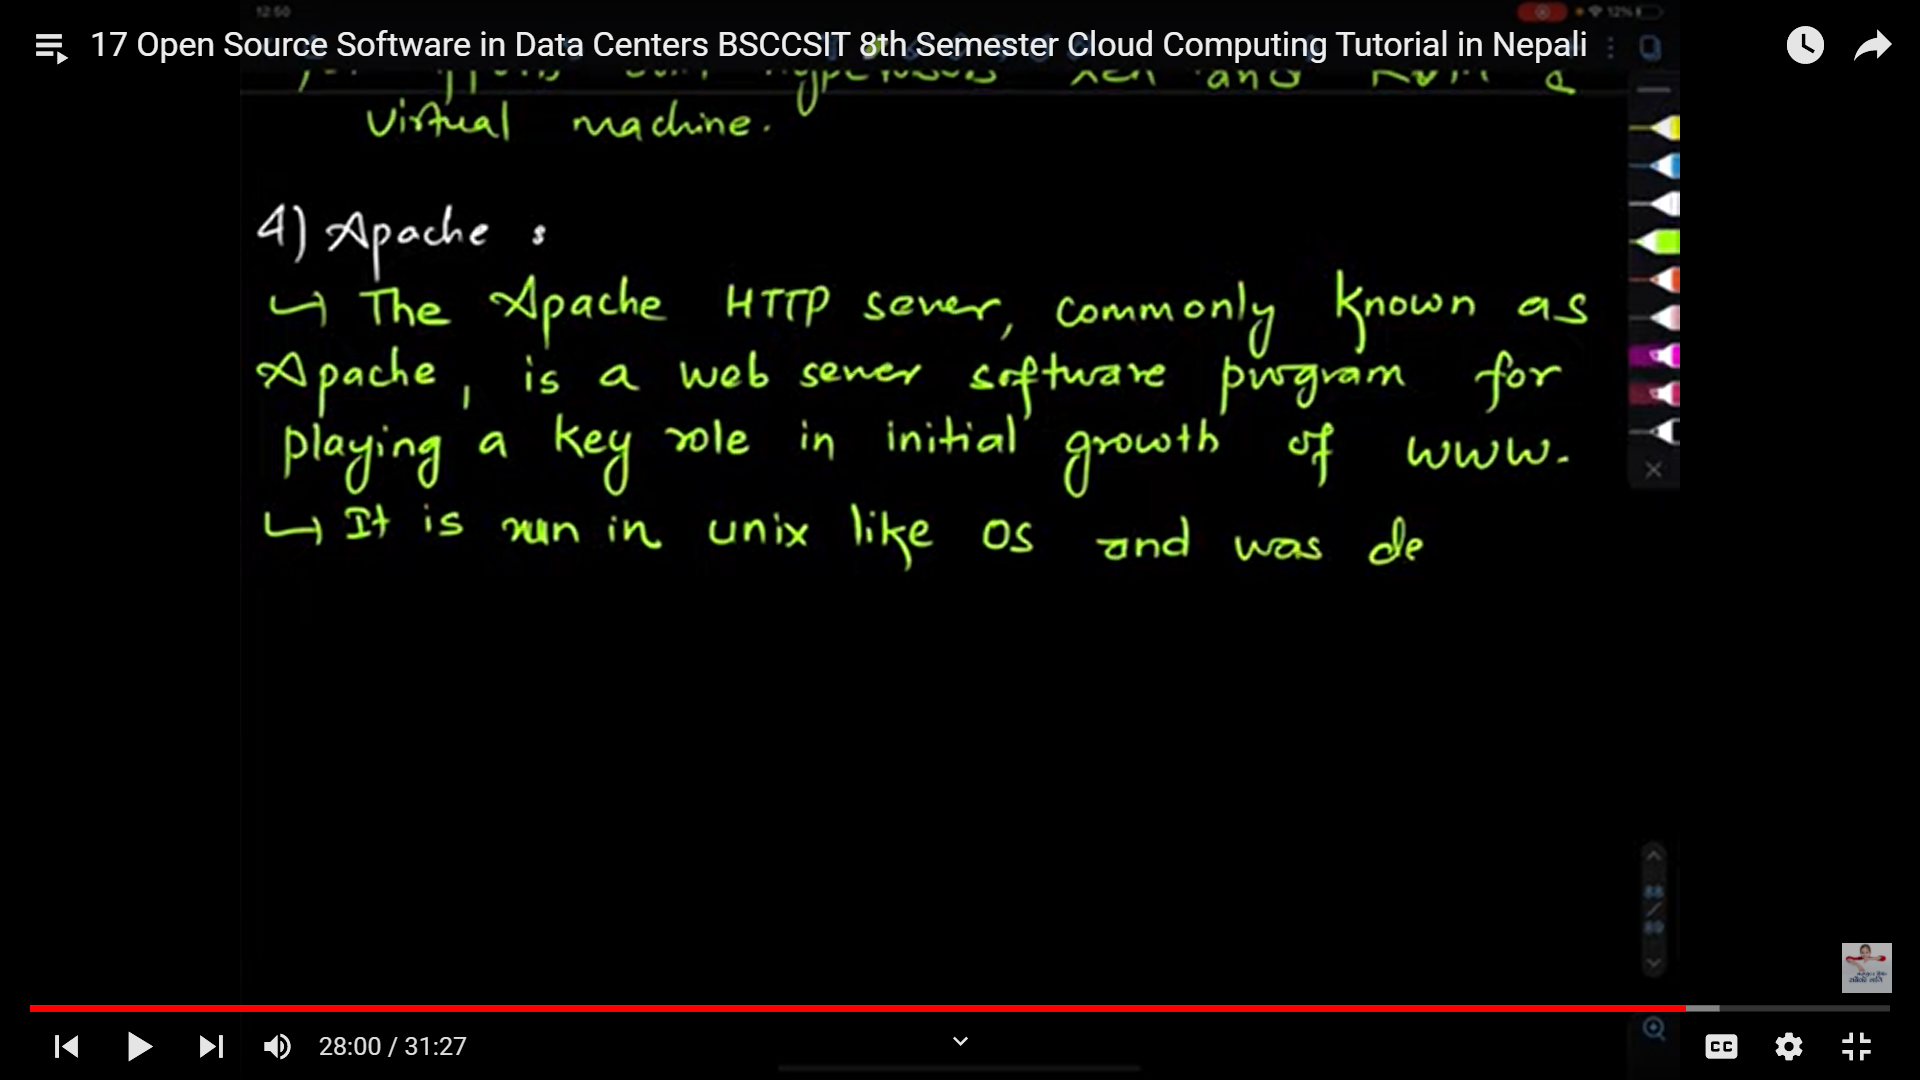 12:50
12%
17 Open Source Software in Data Centers BSCCSIT 8th Semester Cloud Computing Tutorial in Nepali
and
virtual machine.
4) Apache :
↳ The Apache HTTP server, commonly known as
Apache, is a web server software program for
playing a key role in initial growth of www.
↳ It is run in unix like OS and was de
88
/
89
28:00 / 31:27
CC